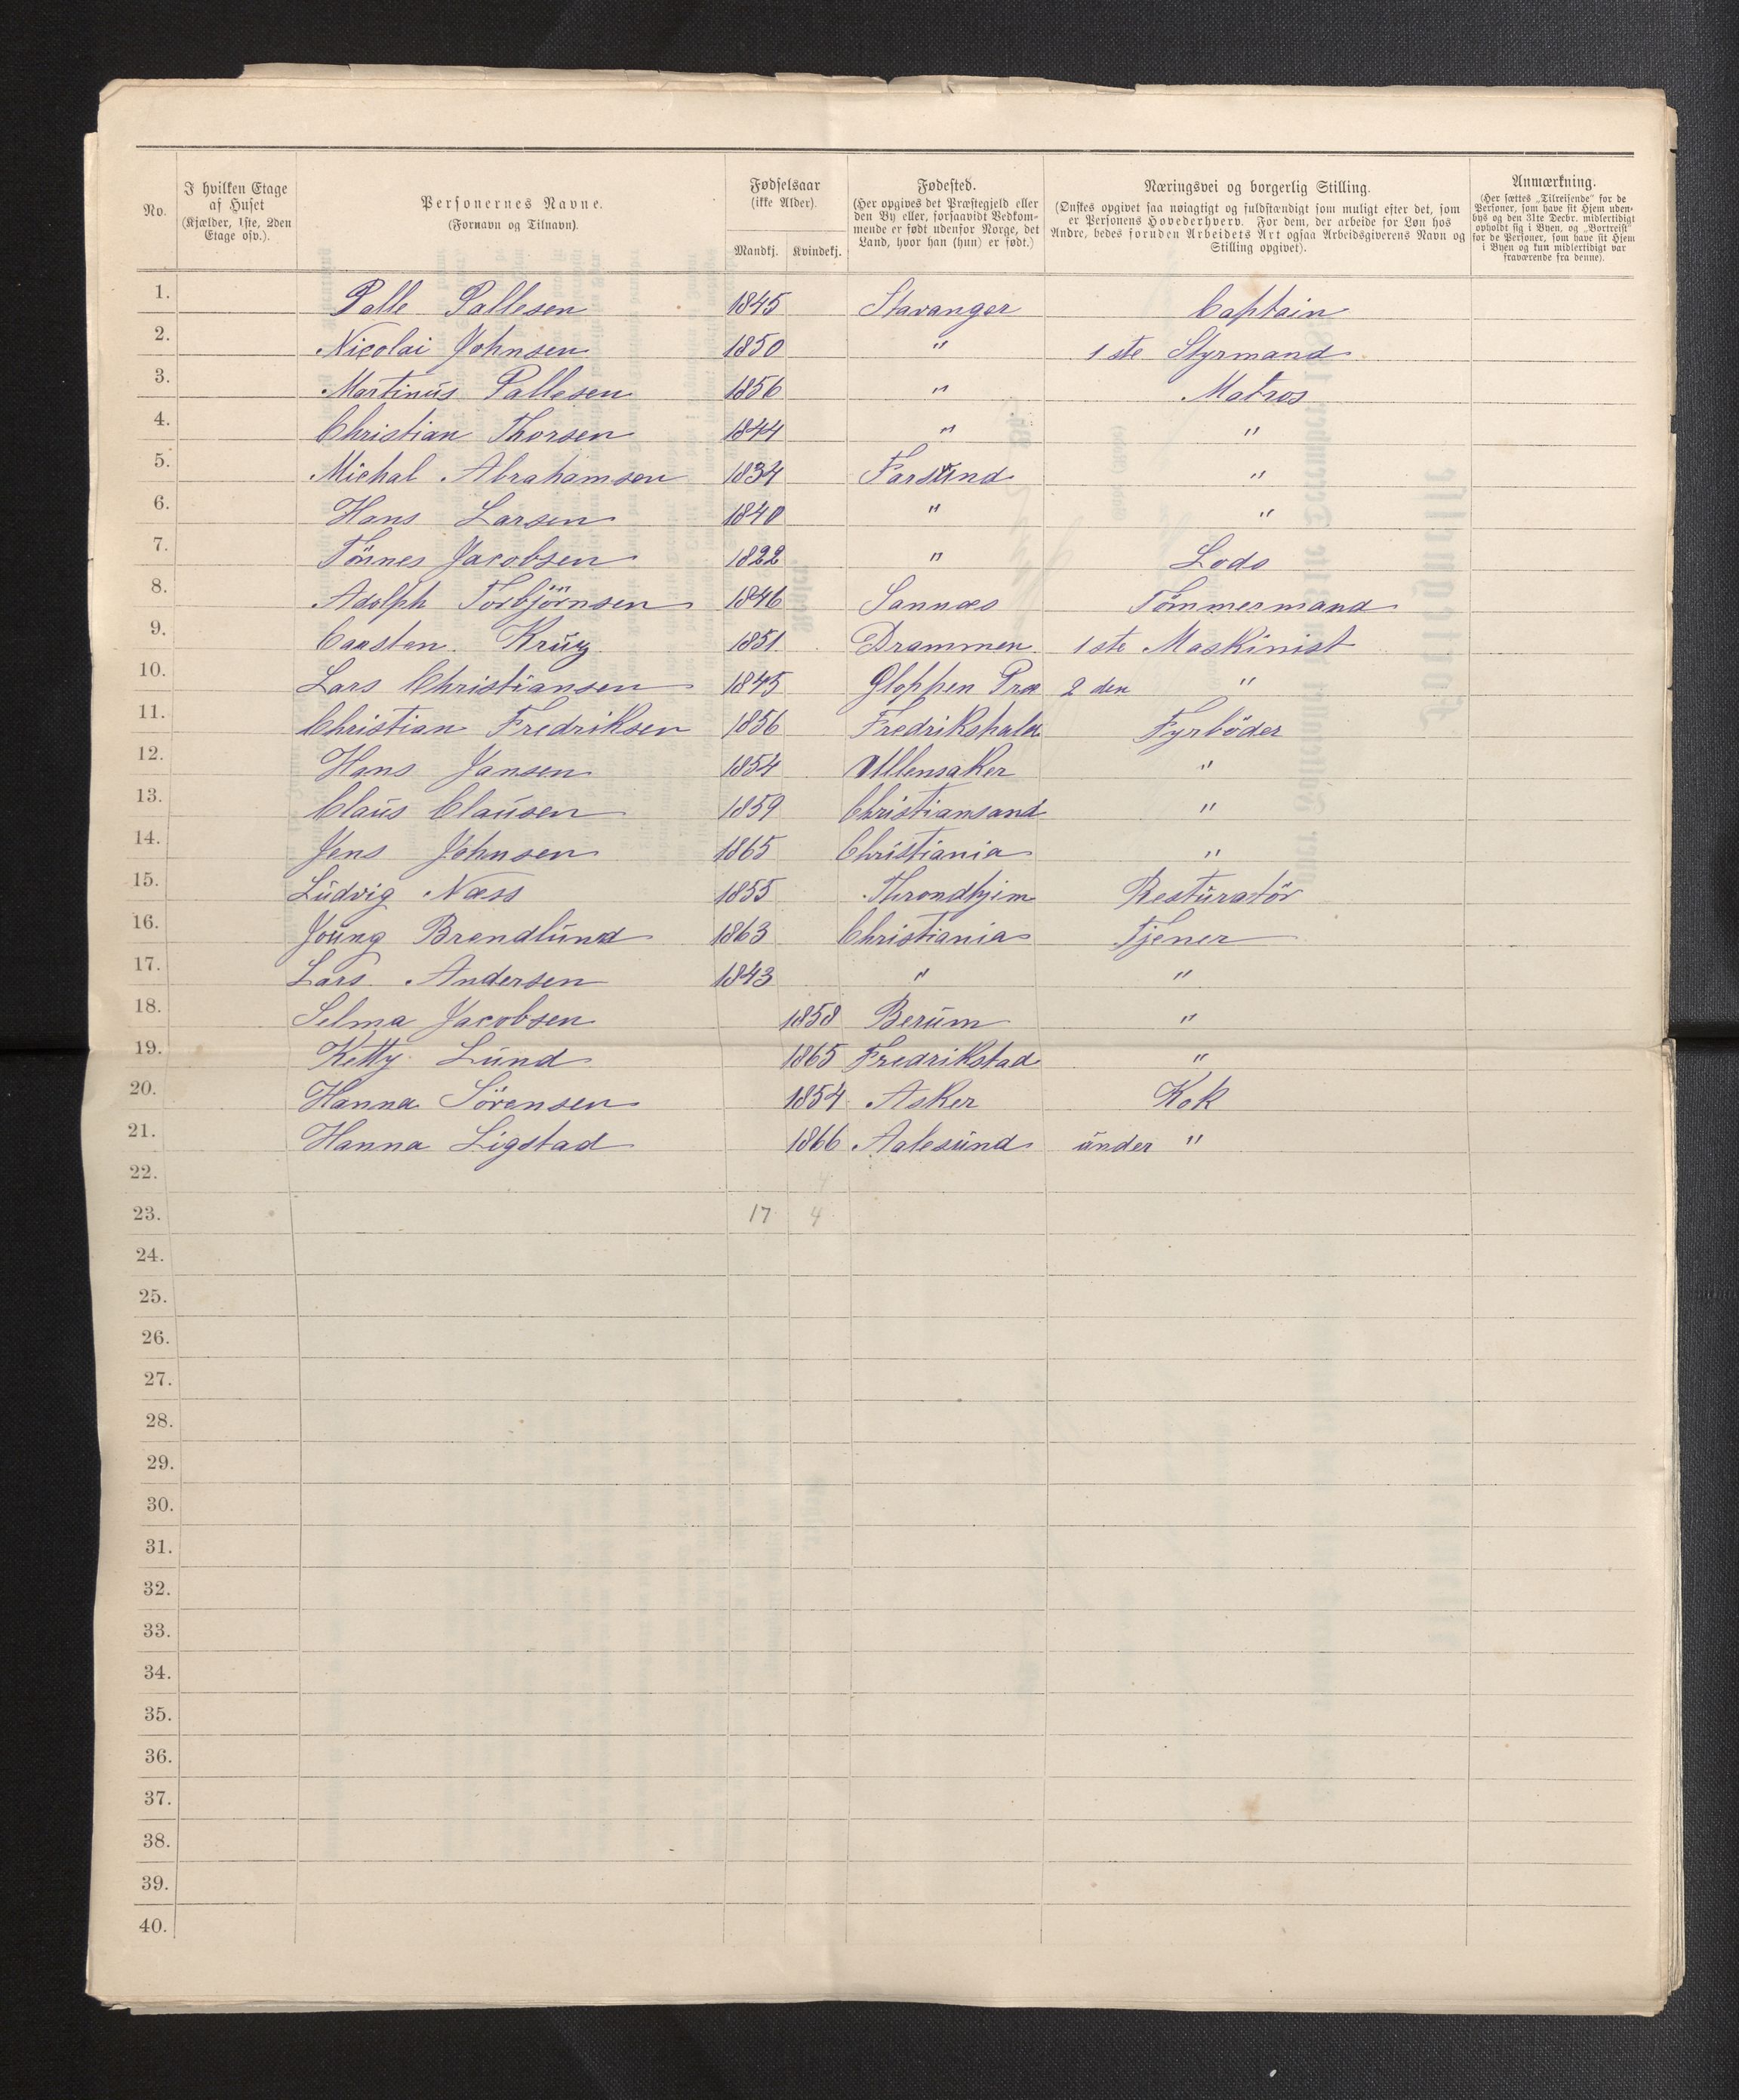 No.
I hvilken Etage af Huset (Kjælder, 1ste, 2den Etage osv.).
Personernes Navne. (Fornavn og Tilnavn).
Fødselsaar (ikke Alder).
Mandkj. Kvindekj.
Fødested. (Her opgives det Præstegjeld eller den By eller, forsaavidt Vedkommende er født udenfor Norge, det Land, hvor han (hun) er født.)
Næringsvei og borgerlig Stilling. (Ønskes opgivet saa nøiagtigt og fuldstændigt som muligt efter det, som er Personens Hovederhverv. For dem, der arbeide for Løn hos Andre, bedes foruden Arbeidets Art ogsaa Arbeidsgiverens Navn og Stilling opgivet).
Anmærkning. (Her sættes „Tilreisende" for de Personer, som have sit Hjem udenbys og den 31te Decbr. midlertidigt opholdt sig i Byen, og „Bortreist" for de Personer, som have sit Hjem i Byen og kun midlertidigt var fraværende fra denne).
1. Palle Pallesen 1845 Stavanger Captain
2. Nicolai Johnsen 1850 " 1ste Styrmand
3. Martinus Pallesen 1856 " Matros
4. Christian Thorsen 1844 " "
5. Michal Abrahamsen 1834 Farsund "
6. Hans Larsen 1840 " "
7. Tönnes Jacobsen 1822 " Lods
8. Adolph Torbjörnsen 1846 Sannæs Tömmermand
9. Carsten Krug 1851 Drammen 1ste Maskinist
10. Lars Christiansen 1845 Gloppen Præ 2den "
11. Christian Fredriksen 1856 Fredrikshald Fyrböder
12. Hans Jansen 1854 Ullensaker "
13. Claus Clausen 1859 Christiansand "
14. Jens Johnsen 1865 Christiania "
15. Ludvig Næss 1855 Throndhjem Resturatör
16. Joung Brendlund 1863 Christiania Tjener
17. Lars Andersen 1843 " "
18. Selma Jacobsen 1858 Berum "
19. Ketty Lund 1865 Fredrikstad "
20. Hanna Sörensen 1854 Asker Kok
21. Hanna Ligstad 1866 Aalesund under "
22. 4
23. 17 4
24.
25.
26.
27.
28.
29.
30.
31.
32.
33.
34.
35.
36.
37.
38.
39.
40.